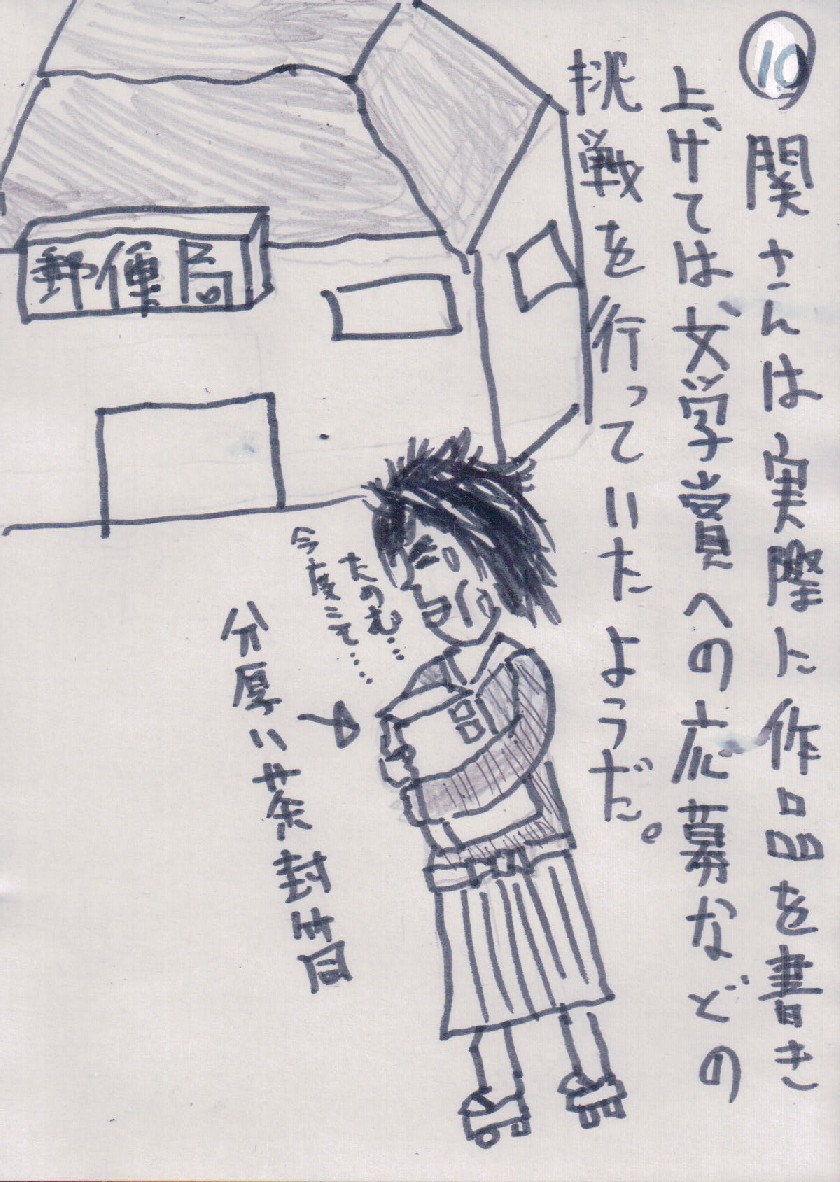 10
関さんは実際に作品を書き
上げては文学賞への応募などの
挑戦を行っていたようだ。
郵便局
たのむ…
今度こそ……
分厚い茶封筒